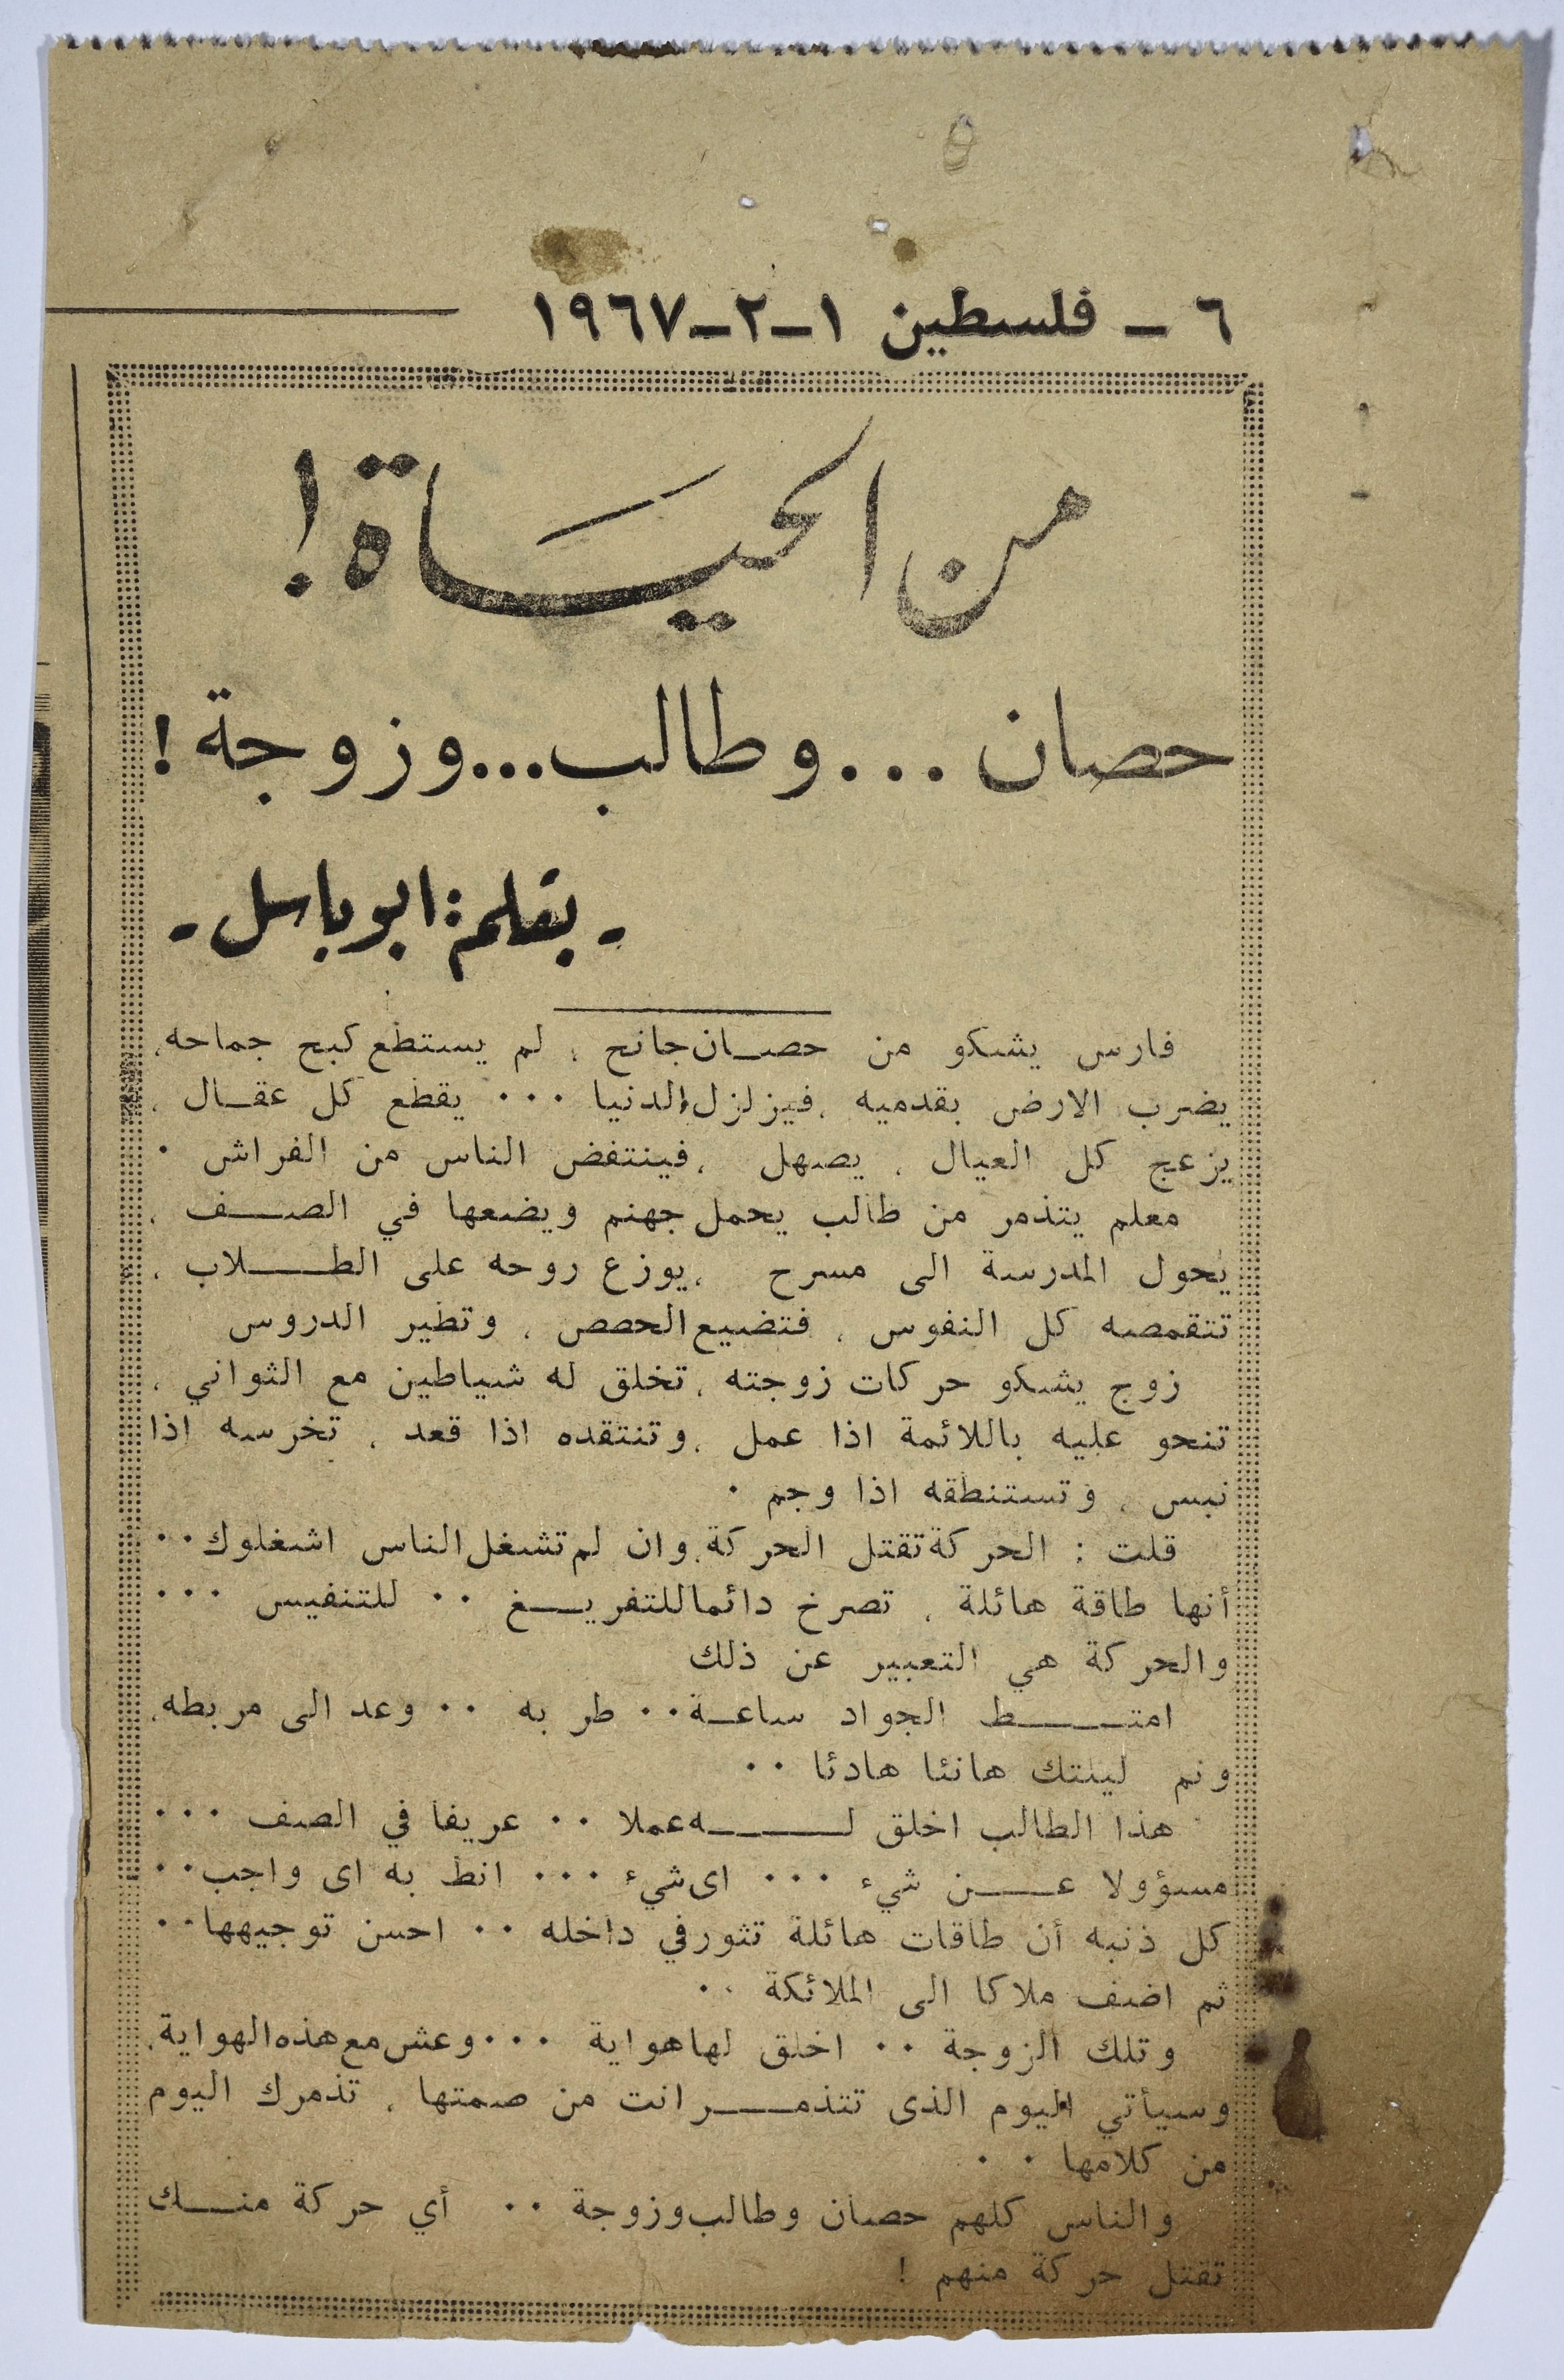 ٦ ـ فلسطين ١ـ٢ـ١٩٦٧
من الحياة !
حصان ... وطالب... وزوجة !
- بقلم : ابو باسل -
فارس يشكو من حصـان جانح ، لم يستطع كبح جماحه،
يضرب الارض بقدميه ،فيزلزل الدنيا ٠٠٠ يقطع كل عقـال ،
يزعج كل العيال ، يصهل ،فينتفض الناس من الفراش ٠
معلم يتذمر من طالب يحمل جهنم ويضعها في الصـف ،
يحول المدرسة الى مسرح ،يوزع روحه على الطـلاب ،
تتقمصه كل النفوس ، فتضيع الحصص ، وتطير الدروس
زوج يشكو حركات زوجته ، تخلق له شياطين مع الثواني ،
تنحو عليه باللائمة اذا عمل ،وتنتقده اذا قعد ، تخرسه اذا
نبس ، وتستنطقه اذا وجم ٠
قلت : الحركة تقتل الحركة، وان لم تشغل الناس اشغلوك٠٠
أنها طاقة هائلة ، تصرخ دائما للتفريـغ ٠٠ للتنفيس ٠٠٠
والحركة هي التعبير عن ذلك
امتـط الجواد ساعـة٠٠ طر به ٠٠ وعد الى مربطه،
ونم ليلتك هانئا هادئا ٠٠
هذا الطالب اخلق لـه عملا ٠٠ عريفا في الصف ٠٠٠
مسؤولا عـن شيء ٠٠٠ اى شيء ٠٠٠ انط به اى واجب٠٠
كل ذنبه أن طاقات هائلة تثور في داخله ٠٠ احسن توجيهها٠٠
ثم اضف ملاكا الى الملائكة ٠٠
وتلك الزوجة ٠٠ اخلق لها هواية ٠٠٠ وعش مع هذه الهواية،
وسيأتي اليوم الذى تتذمـر انت من صمتها ، تذمرك اليوم
من كلامها ٠ ٠
والناس كلهم حصان وطالب وزوجة ٠٠ أي حركة منـك
تقتل حركة منهم !